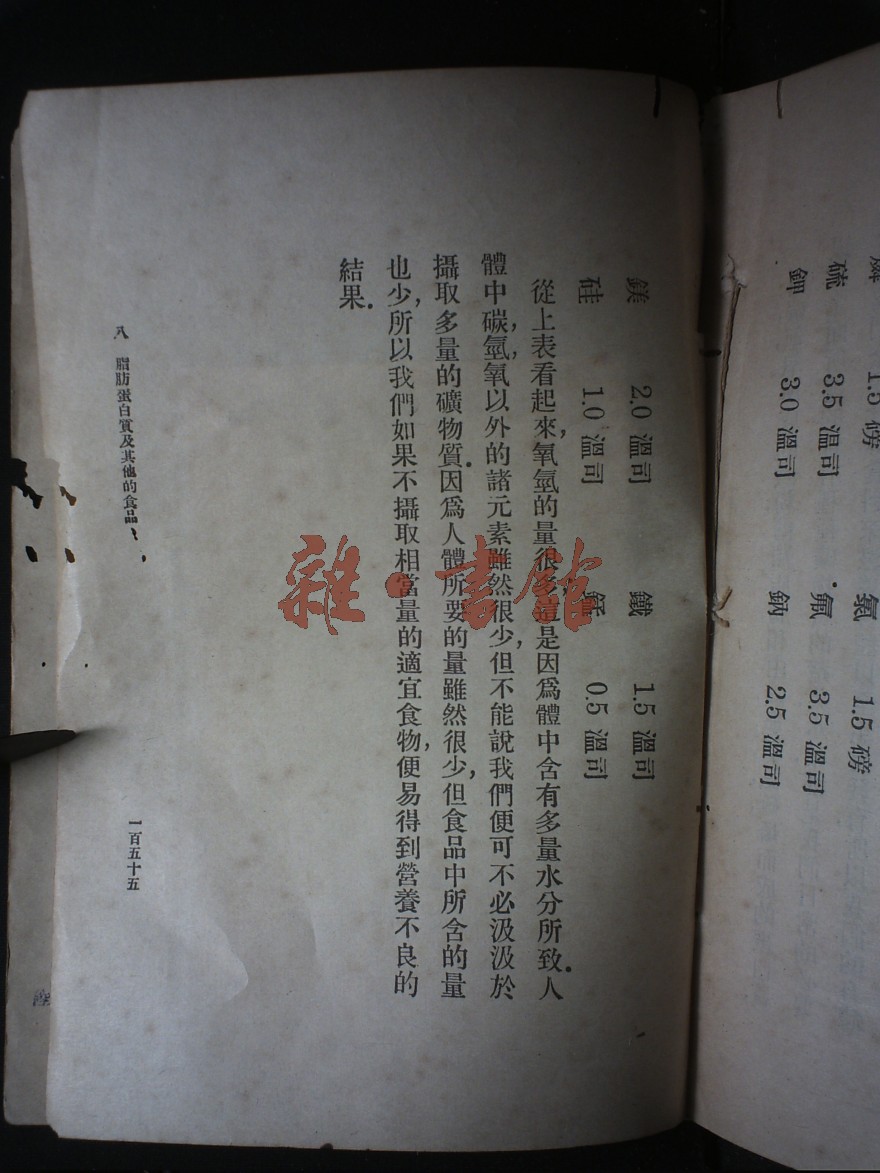 燐 1.5 磅 氯 1.5 磅
硫 3.5 溫司 氟 3.5 溫司
鉀 3.0 溫司 鈉 2.5 溫司
鎂 2.0 溫司 鐵 1.5 溫司
硅 1.0 溫司 0.5 溫司
從上表看起來,氧氫的量很多,這是因爲體中含有多量水分所致.人
體中碳,氫,氧以外的諸元素雖然很少,但不能說我們便可不必汲汲於
攝取多量的礦物質.因爲人體所要的量雖然很少,但食品中所含的量
也少,所以我們如果不攝取相當量的適宜食物,便易得到營養不良的
結果.
八 脂肪蛋白質及其他的食品
一百五十五
雜·書館